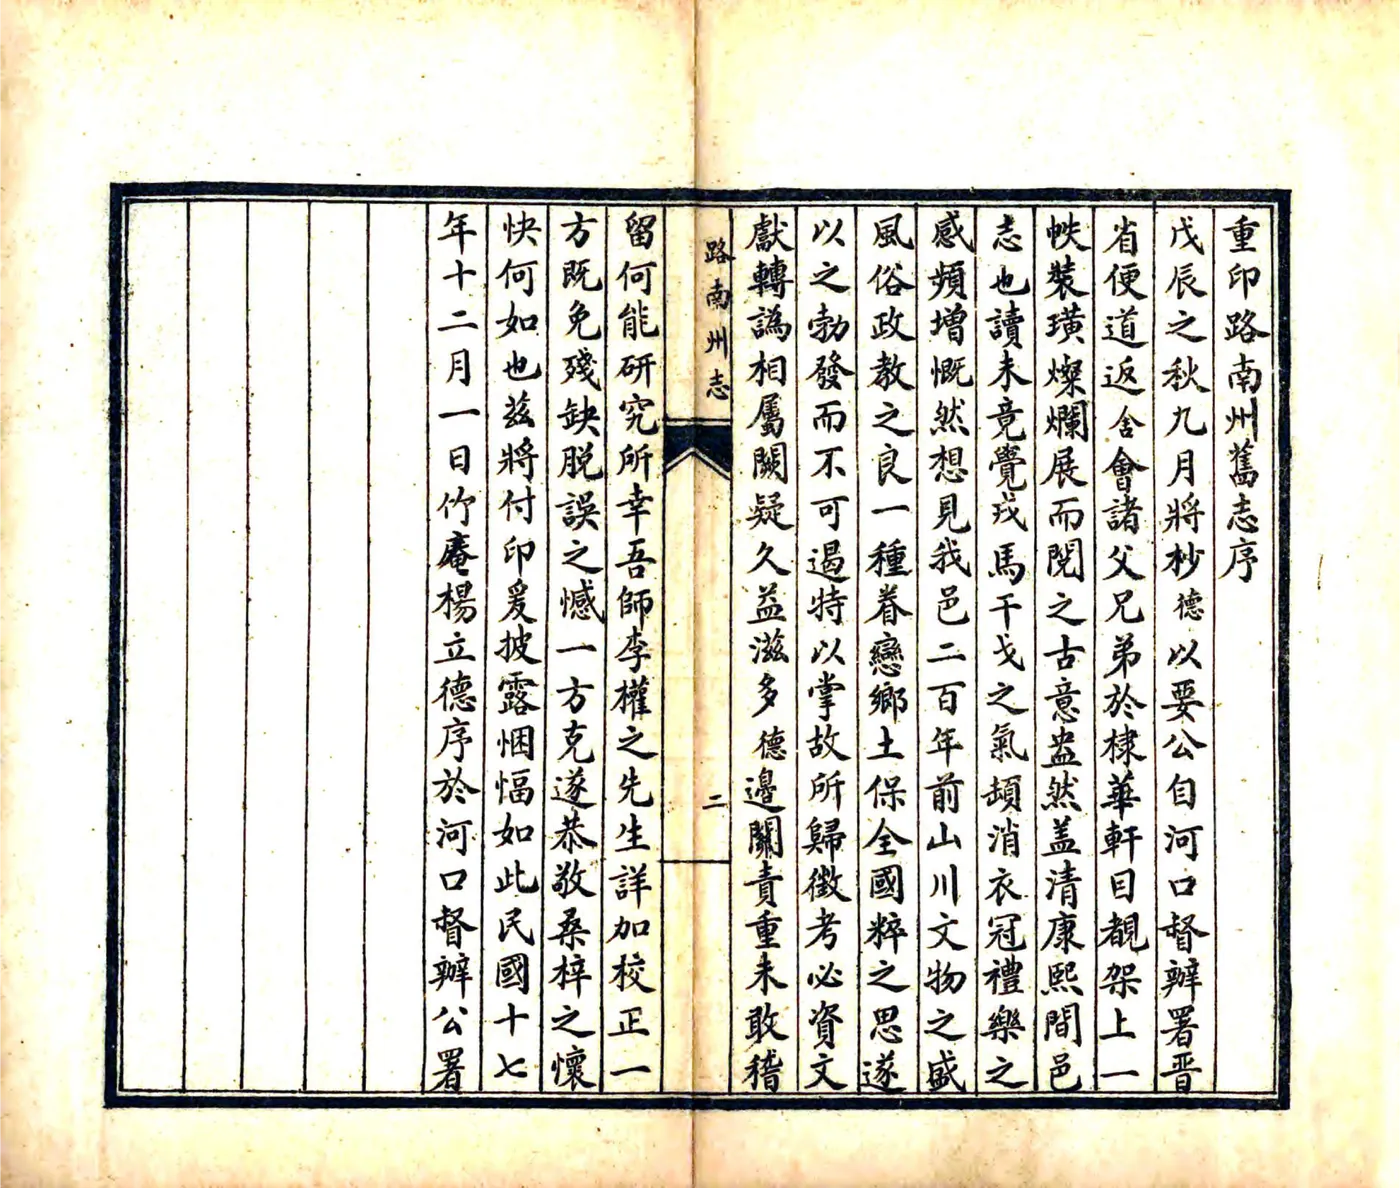 重印路南州舊志序
戊辰之秋九月將杪德以要公自河口督辦署晋
省便道返舍會諸父兄弟於棣華軒目覩架上一
帙裝璜燦爛展而閱之古意盎然盖清康熙間邑
志也讀未竟覺戎馬干戈之氣頓消衣冠禮樂之
感頻增慨然想見我邑二百年前山川文物之盛
風俗政教之良一種眷戀鄉土保全國粹之思遂
以之勃發而不可遏特以掌故所歸徵考必資文
獻轉譌相屬闕疑久益滋多德邊關責重未敢稽
路南州志
二
留何能研究所幸吾師李權之先生詳加校正一
方既免殘缺脱誤之憾一方克遂恭敬桑梓之懷
快何如也茲將付印爰披露悃愊如此民國十七
年十二月一日竹庵楊立德序於河口督辦公署